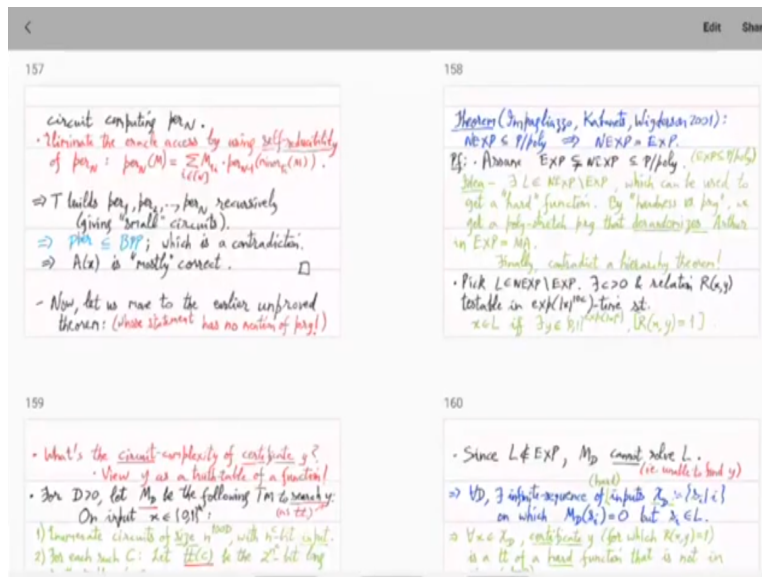 Edit Shar
157
circuit computing per_N.
· Eliminate the oracle access by using self-reducibility
of per_N : per_N(M) = Σ_{i∈[N]} M_{1i} · per_{N-1}(minor_{1i}(M)).
⇒ T builds per_1, per_2, ..., per_N recursively
(giving "small" circuits).
⇒ Pper ⊆ BPP ; which is a contradiction.
⇒ A(x) is "mostly" correct. □
- Now, let us move to the earlier unproved
theorem: (whose statement has no notion of prg!)
158
Theorem (Impagliazzo, Kabanets, Wigderson 2001):
NEXP ⊆ P/poly ⇒ NEXP = EXP.
Pf: · Assume EXP ⊊ NEXP ⊆ P/poly. (EXP⊆P/poly)
Idea - ∃ L ∈ NEXP\EXP, which can be used to
get a "hard" function. By "hardness vs prg", we
get a poly-stretch prg that derandomizes Arthur
in EXP = MA.
Finally, contradict a hierarchy theorem!
· Pick L∈NEXP\EXP. ∃c>0 & relation R(x,y)
testable in exp(|x|^{10c})-time st.
x∈L iff ∃y∈{0,1}^{exp(|x|^c)}, [R(x,y)=1].
159
· What's the circuit-complexity of certificate y?
· View y as a truth-table of a function!
· For D>0, let M_D be the following TM to search y:
On input x∈{0,1}^n: (as tt)
1) Enumerate circuits of size n^{100D}, with n^c-bit input.
2) For each such C: Let tt(C) be the 2^{n^c}-bit long
160
· Since L∉EXP, M_D cannot solve L.
(ie. unable to find y)
(hard)
⇒ ∀D, ∃ infinite-sequence of inputs X_D := {x_i | i}
on which M_D(x_i)=0 but x_i∈L.
⇒ ∀x∈X_D, certificate y (for which R(x,y)=1)
is a tt of a hard function that is not in